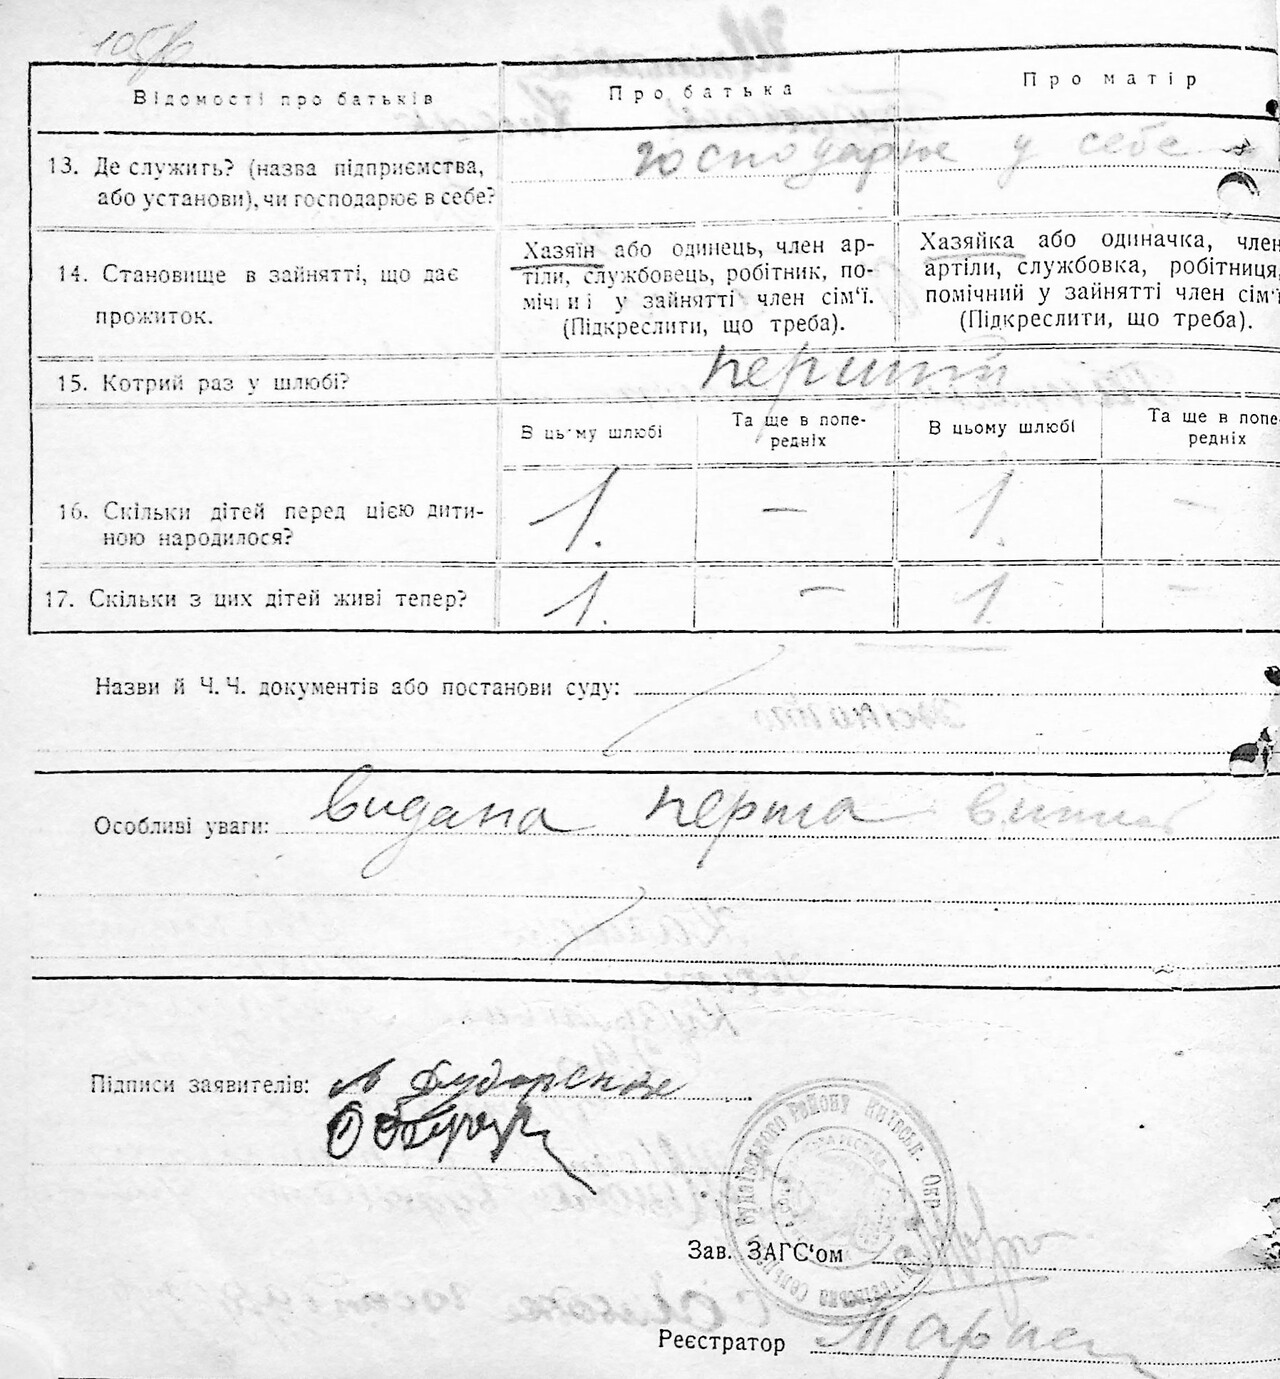 Відомості про батьків
Про батька
Про матір
13. Де служить? (назва підприємства,
або установи), чи господарює в себе?
господарює у себе
14. Становище в зайнятті, що дає
прожиток.
Хазяїн або одинець, член ар-
тіли, службовець, робітник, по-
мічний у зайнятті член сім'ї.
(Підкреслити, що треба).
Хазяйка або одиначка, член
артіли, службовка, робітниця,
помічний у зайнятті член сім'ї
(Підкреслити, що треба).
15. Котрий раз у шлюбі?
перший
В цьому шлюбі
Та ще в попе-
редніх
В цьому шлюбі
Та ще в попе-
редніх
16. Скільки дітей перед цією дити-
ною народилося?
1. — 1. —
17. Скільки з цих дітей живі тепер?
1. — 1. —
Назви й Ч. Ч. документів або постанови суду:
Особливі уваги: видана перша
Підписи заявителів:
Зав. ЗАГС'ом
Реєстратор